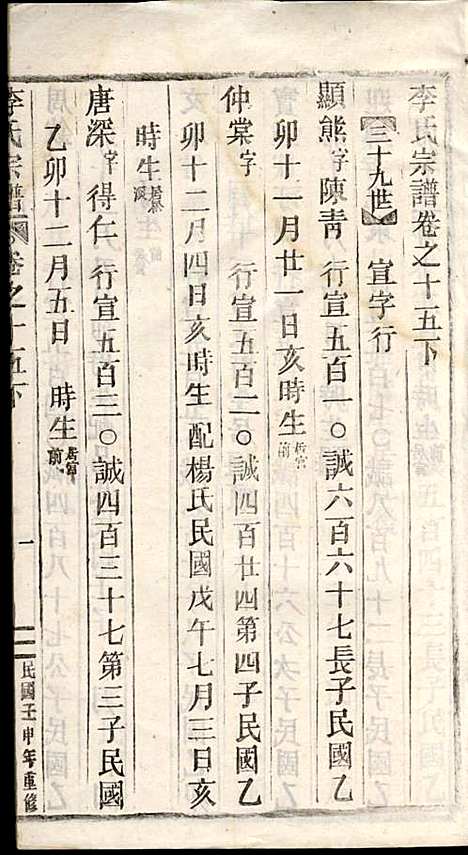 李氏宗譜卷之十五下
三十九世 宣字行
顯熊字陳靑 行宣五百一〇誠六百六十七長子民國乙
卯十一月廿一日亥時生居宮前
仲棠字 行宣五百二〇誠四百廿四第四子民國乙
卯十二月四日亥時生 配楊氏民國戊午七月三日亥
時生居
唐深字得仁 行宣五百三〇誠四百三十七第三子民國
乙卯十二月五日 時生居宮前
李氏宗譜 卷之十五下 一 民國壬申年重修